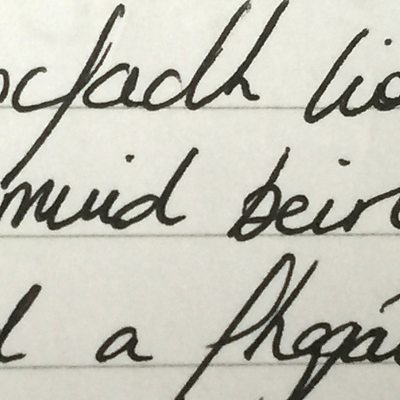 ocfadh lio
muid beir
a fhágái